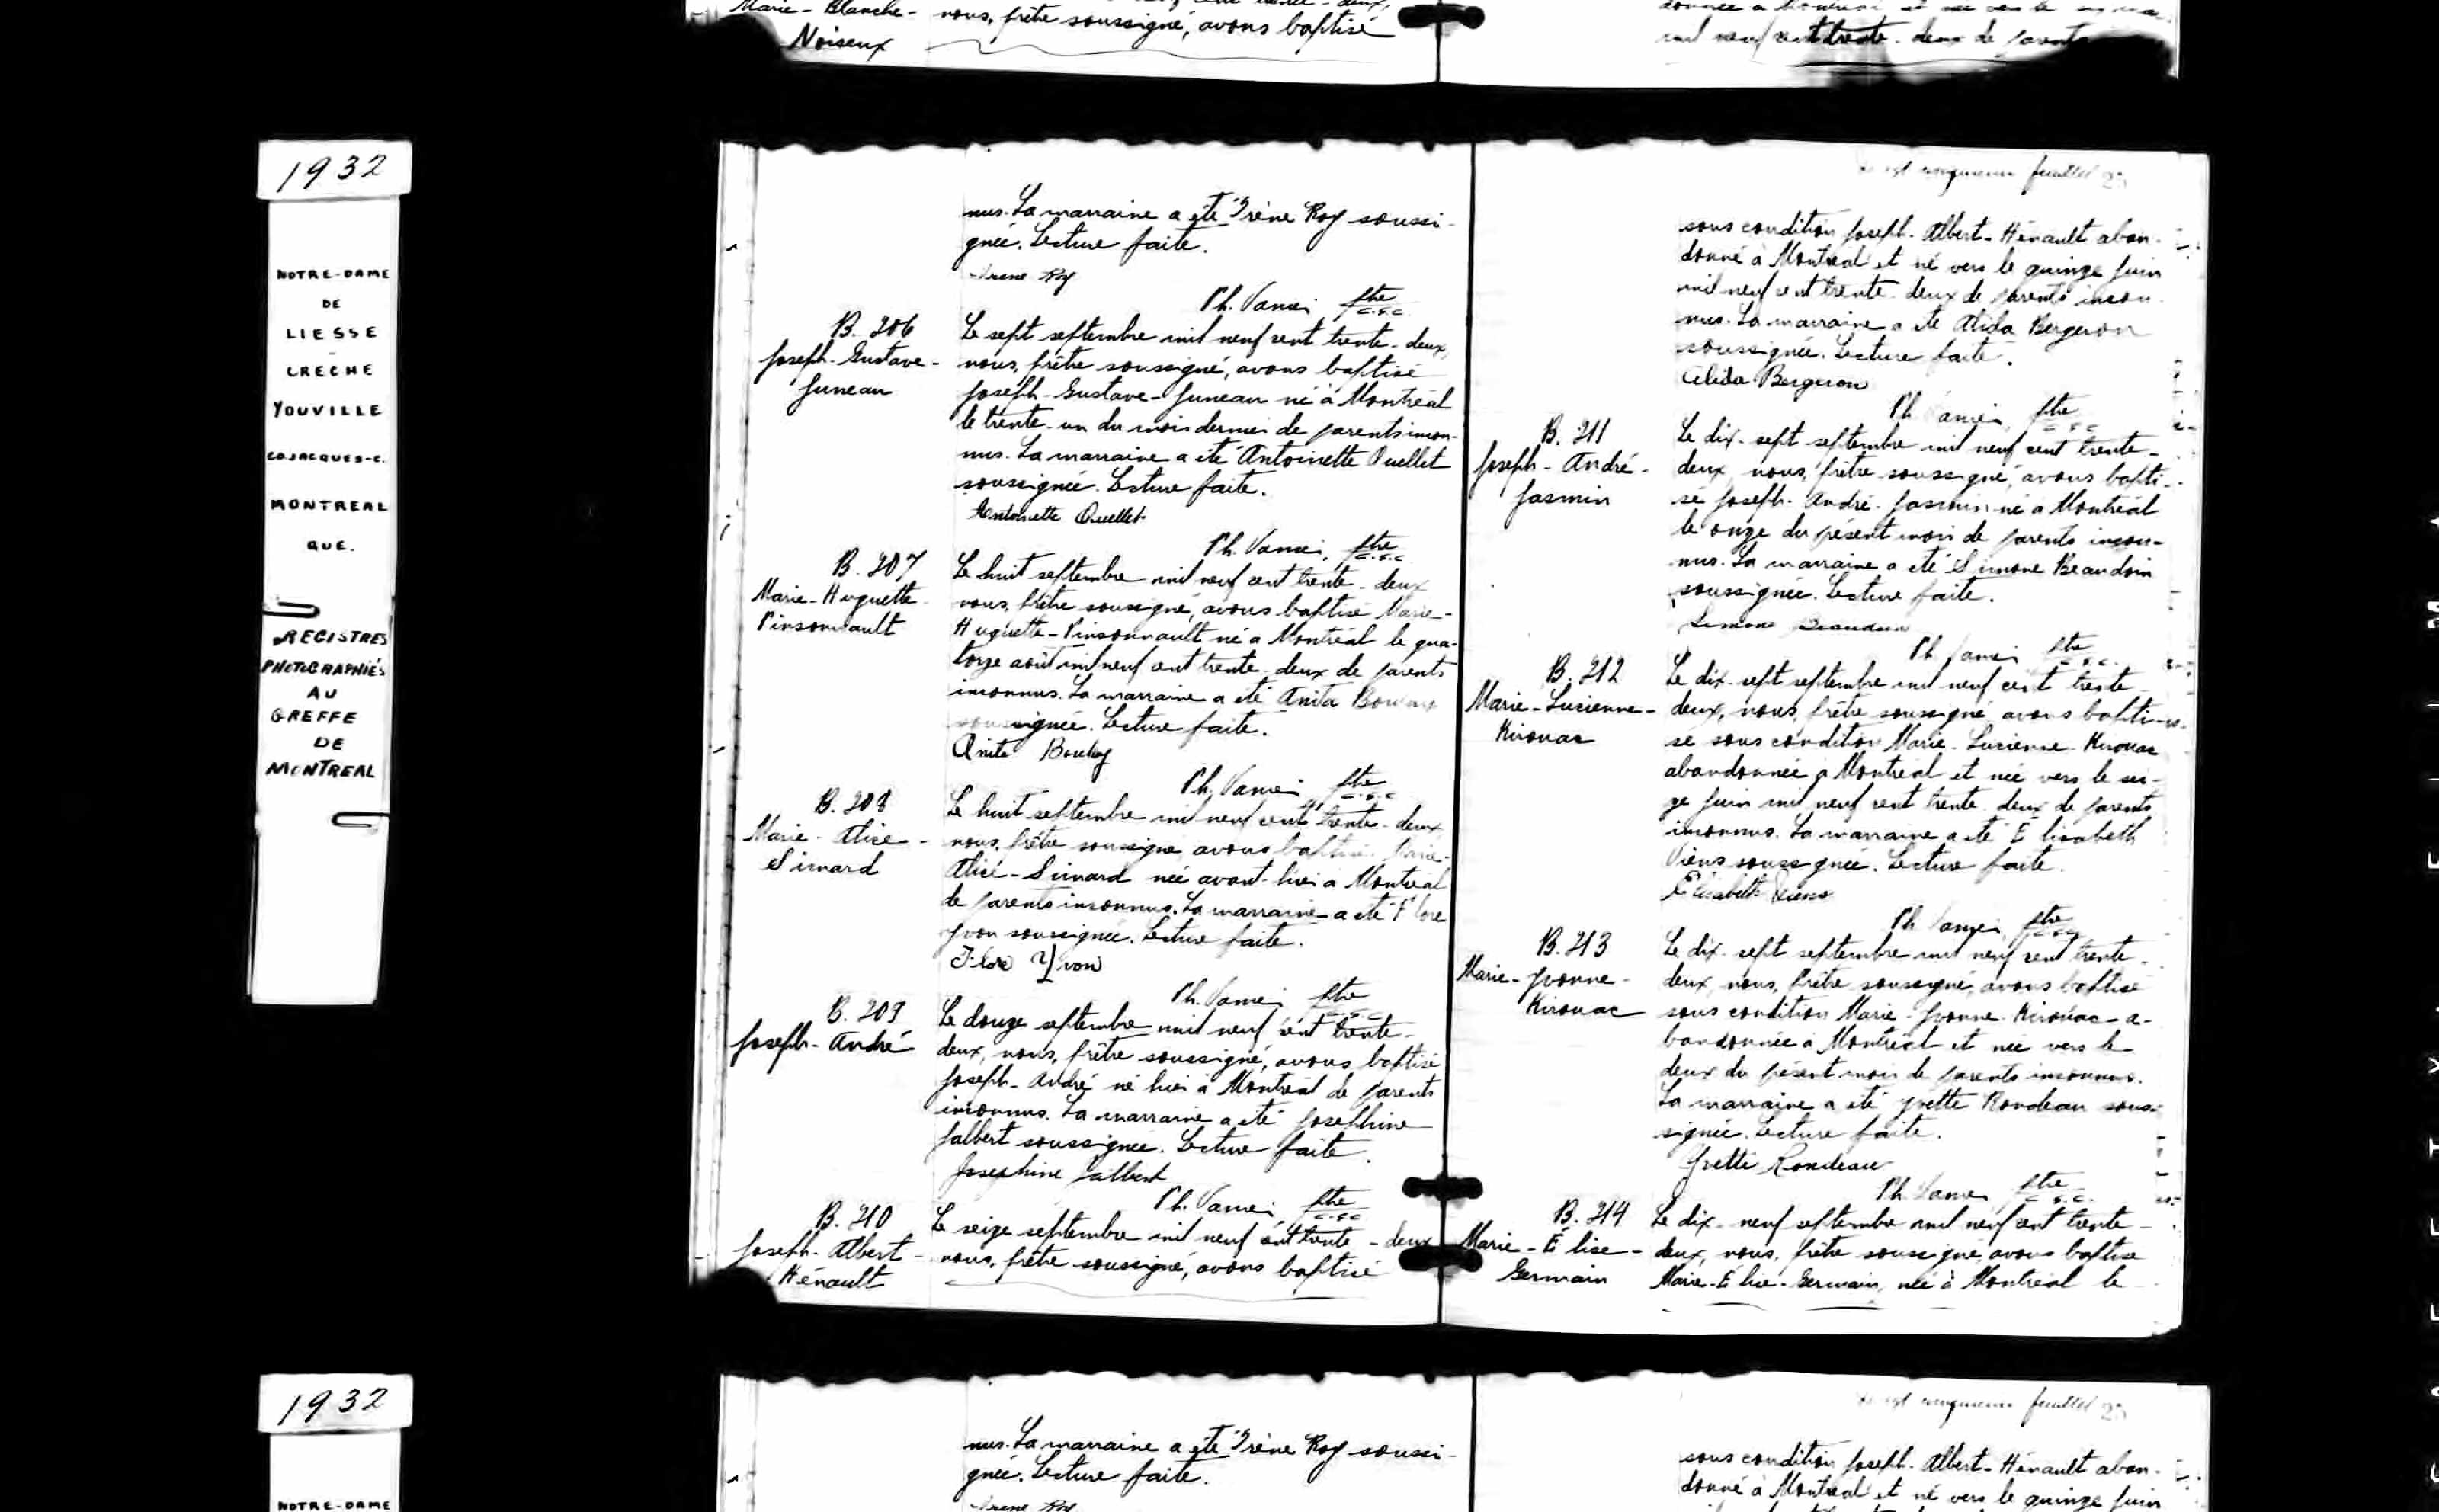 Marie-Blanche-
Noiseux
nous, prêtre soussigné, avons baptisé
mil neuf cent trente-deux de parents
1932
NOTRE-DAME
DE
LIESSE
CRECHE
YOUVILLE
CO. JACQUES-C.
MONTREAL
QUE.
REGISTRES
PHOTOGRAPHIÉS
AU
GREFFE
DE
MONTREAL
nus. La marraine a été Irène Roy soussi-
gnée. Lecture faite.
Irene Roy
Ph. ptre
c.s.c.
B. 206
Joseph-Gustave-
Juneau
Le sept septembre mil neuf cent trente-deux,
nous, prêtre soussigné, avons baptisé
Joseph-Gustave-Juneau né à Montréal
le trente-un du mois dernier de parents incon-
nus. La marraine a été Antoinette Ouellet
soussignée. Lecture faite.
Antoinette Ouellet
Ph. ptre
c.s.c
B. 207
Marie-Huguette
Pinsonnault
Le huit septembre mil neuf cent trente-deux
nous, prêtre soussigné, avons baptisé Marie-
Huguette-Pinsonnault né à Montréal le qua-
torze août mil neuf cent trente-deux de parents
inconnus. La marraine a été Anita
soussignée. Lecture faite.
Anita
Ph. ptre
c.s.c
B. 208
Marie-Alice-
Simard
Le huit septembre mil neuf cent trente-deux
nous, prêtre soussigné, avons baptisé Marie-
Alice-Simard née avant-hier à Montréal
de parents inconnus. La marraine a été Flore
Yvon soussignée. Lecture faite.
Flore Yvon
Ph. ptre
c.s.c
B. 209
Joseph-André
Le douze septembre mil neuf cent trente-
deux, nous, prêtre soussigné, avons baptisé
Joseph-André né hier à Montréal de parents
inconnus. La marraine a été Josephine
Jalbert soussignée. Lecture faite.
Josephine Jalbert
Ph. ptre
c.s.c
B. 210
Joseph-Albert-
Hénault
Le seize septembre mil neuf cent trente-deux
nous, prêtre soussigné, avons baptisé
feuillet
sous condition Joseph-Albert-Hénault aban-
donné à Montréal et né vers le quinze juin
mil neuf cent trente-deux de parents incon-
nus. La marraine a été Alida Bergeron
soussignée. Lecture faite.
Alida Bergeron
Ph. ptre
c.s.c
B. 211
Joseph-André-
Jasmin
Le dix-sept septembre mil neuf cent trente-
deux, nous, prêtre soussigné, avons bapti-
sé Joseph-André-Jasmin né à Montréal
le onze du présent mois de parents incon-
nus. La marraine a été Simone Beaudoin
soussignée. Lecture faite.
Simone
Ph. ptre
c.s.c.
B. 212
Marie-Lucienne-
Kirouac
Le dix-sept septembre mil neuf cent trente-
deux, nous, prêtre soussigné, avons bapti-
sé sous condition Marie-Lucienne-Kirouac
abandonnée à Montréal et née vers le sei-
ze juin mil neuf cent trente-deux de parents
inconnus. La marraine a été Elisabeth
Viens soussignée. Lecture faite.
Elisabeth Viens
Ph. ptre
c.s.c.
B. 213
Marie-Yvonne-
Kirouac
Le dix-sept septembre mil neuf cent trente-
deux, nous, prêtre soussigné, avons baptisé
sous condition Marie-Yvonne-Kirouac-a-
bandonnée à Montréal et née vers le
deux du présent mois de parents inconnus.
La marraine a été Yvette Rondeau sous-
signée. Lecture faite.
Yvette Rondeau
Ph. ptre
c.s.c.
B. 214
Marie-Élise-
Germain
Le dix-neuf septembre mil neuf cent trente-
deux, nous, prêtre soussigné, avons baptisé
Marie-Élise-Germain, née à Montréal le
1932
NOTRE-DAME
nus. La marraine a été Irène Roy soussi-
gnée. Lecture faite.
Irene Roy
feuillet
sous condition Joseph-Albert-Hénault aban-
donné à Montréal et né vers le quinze juin